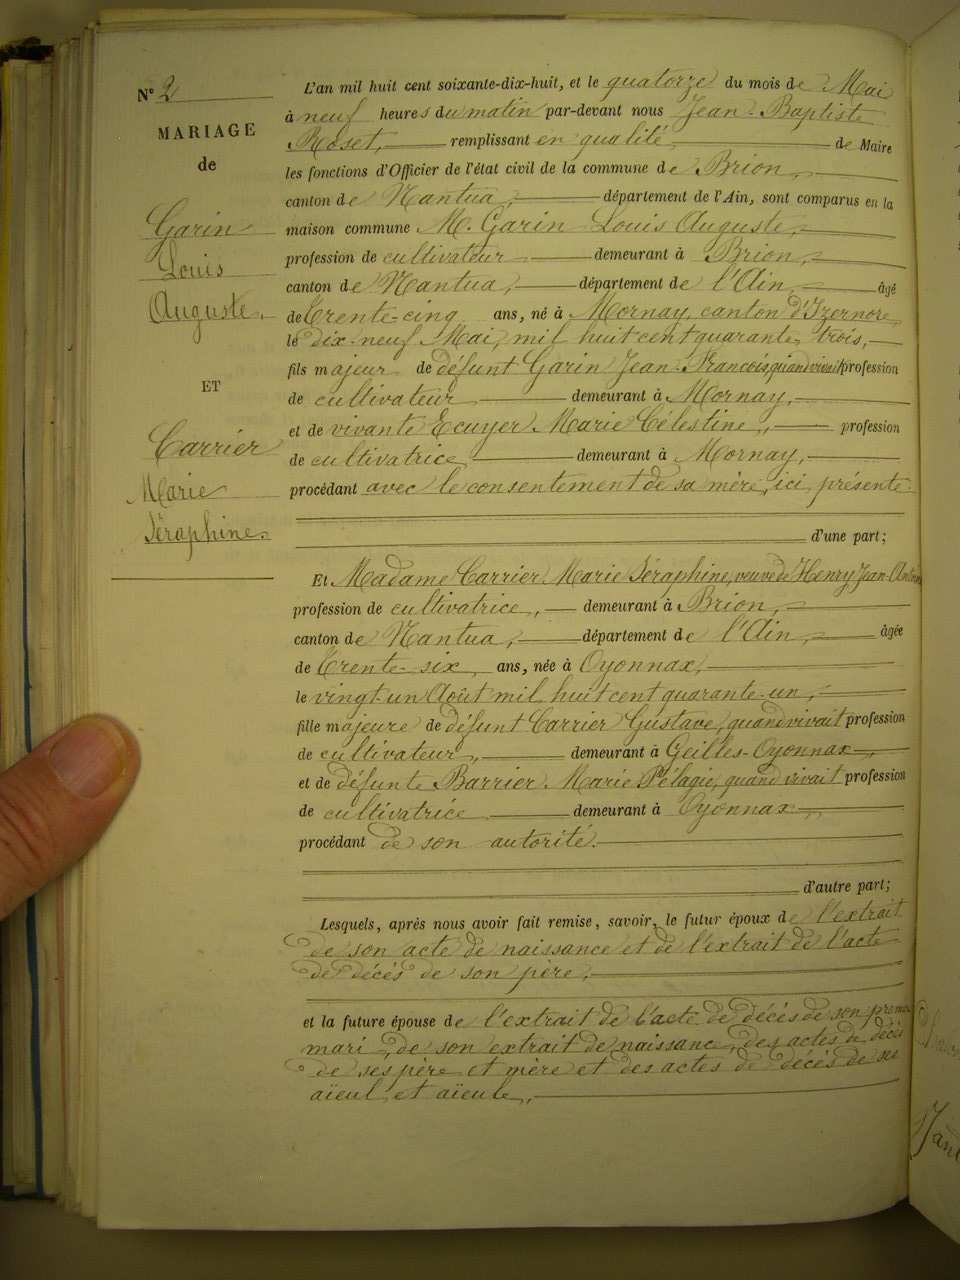 N° 2
MARIAGE
de
Garin
Louis
Auguste.
ET
Carrier
Marie
Séraphine.
L'an mil huit cent soixante-dix-huit, et le quatorze du mois de Mai
à neuf heures du matin par-devant nous Jean-Baptiste
Roset, remplissant en qualité de Maire
les fonctions d'Officier de l'état civil de la commune de Brion,
canton de Nantua, département de l'Ain, sont comparus en la
maison commune M. Garin Louis Auguste,
profession de cultivateur demeurant à Brion,
canton de Nantua, département de l'Ain, âgé
de trente-cinq ans, né à Mornay, canton d'Izernore,
le dix-neuf Mai, mil huit cent quarante trois,
fils majeur de défunt Garin Jean-Francois quand vivait profession
de cultivateur demeurant à Mornay,
et de vivante Ecuyer Marie Célestine, profession
de cultivatrice demeurant à Mornay,
procédant avec le consentement de sa mère, ici présente.
d'une part;
Et Madame Carrier Marie Séraphine, veuve de Henry Jean-
profession de cultivatrice, demeurant à Brion,
canton de Nantua, département de l'Ain, âgée
de trente-six ans, née à Oyonnax,
le vingt-un Août mil huit cent quarante-un,
fille majeure de défunt Carrier Gustave, quand vivait profession
de cultivateur, demeurant à Geilles-Oyonnax,
et de défunte Barrier Marie Pélagie, quand vivait profession
de cultivatrice demeurant à Oyonnax,
procédant de son autorité.
d'autre part;
Lesquels, après nous avoir fait remise, savoir, le futur époux de l'extrait
de son acte de naissance et de l'extrait de l'acte
de décès de son père,
et la future épouse de l'extrait de l'acte de décès de son premier
mari, de son extrait de naissance, des actes de décès
de ses père et mère et des actes de décès de ses
aïeul et aïeule,